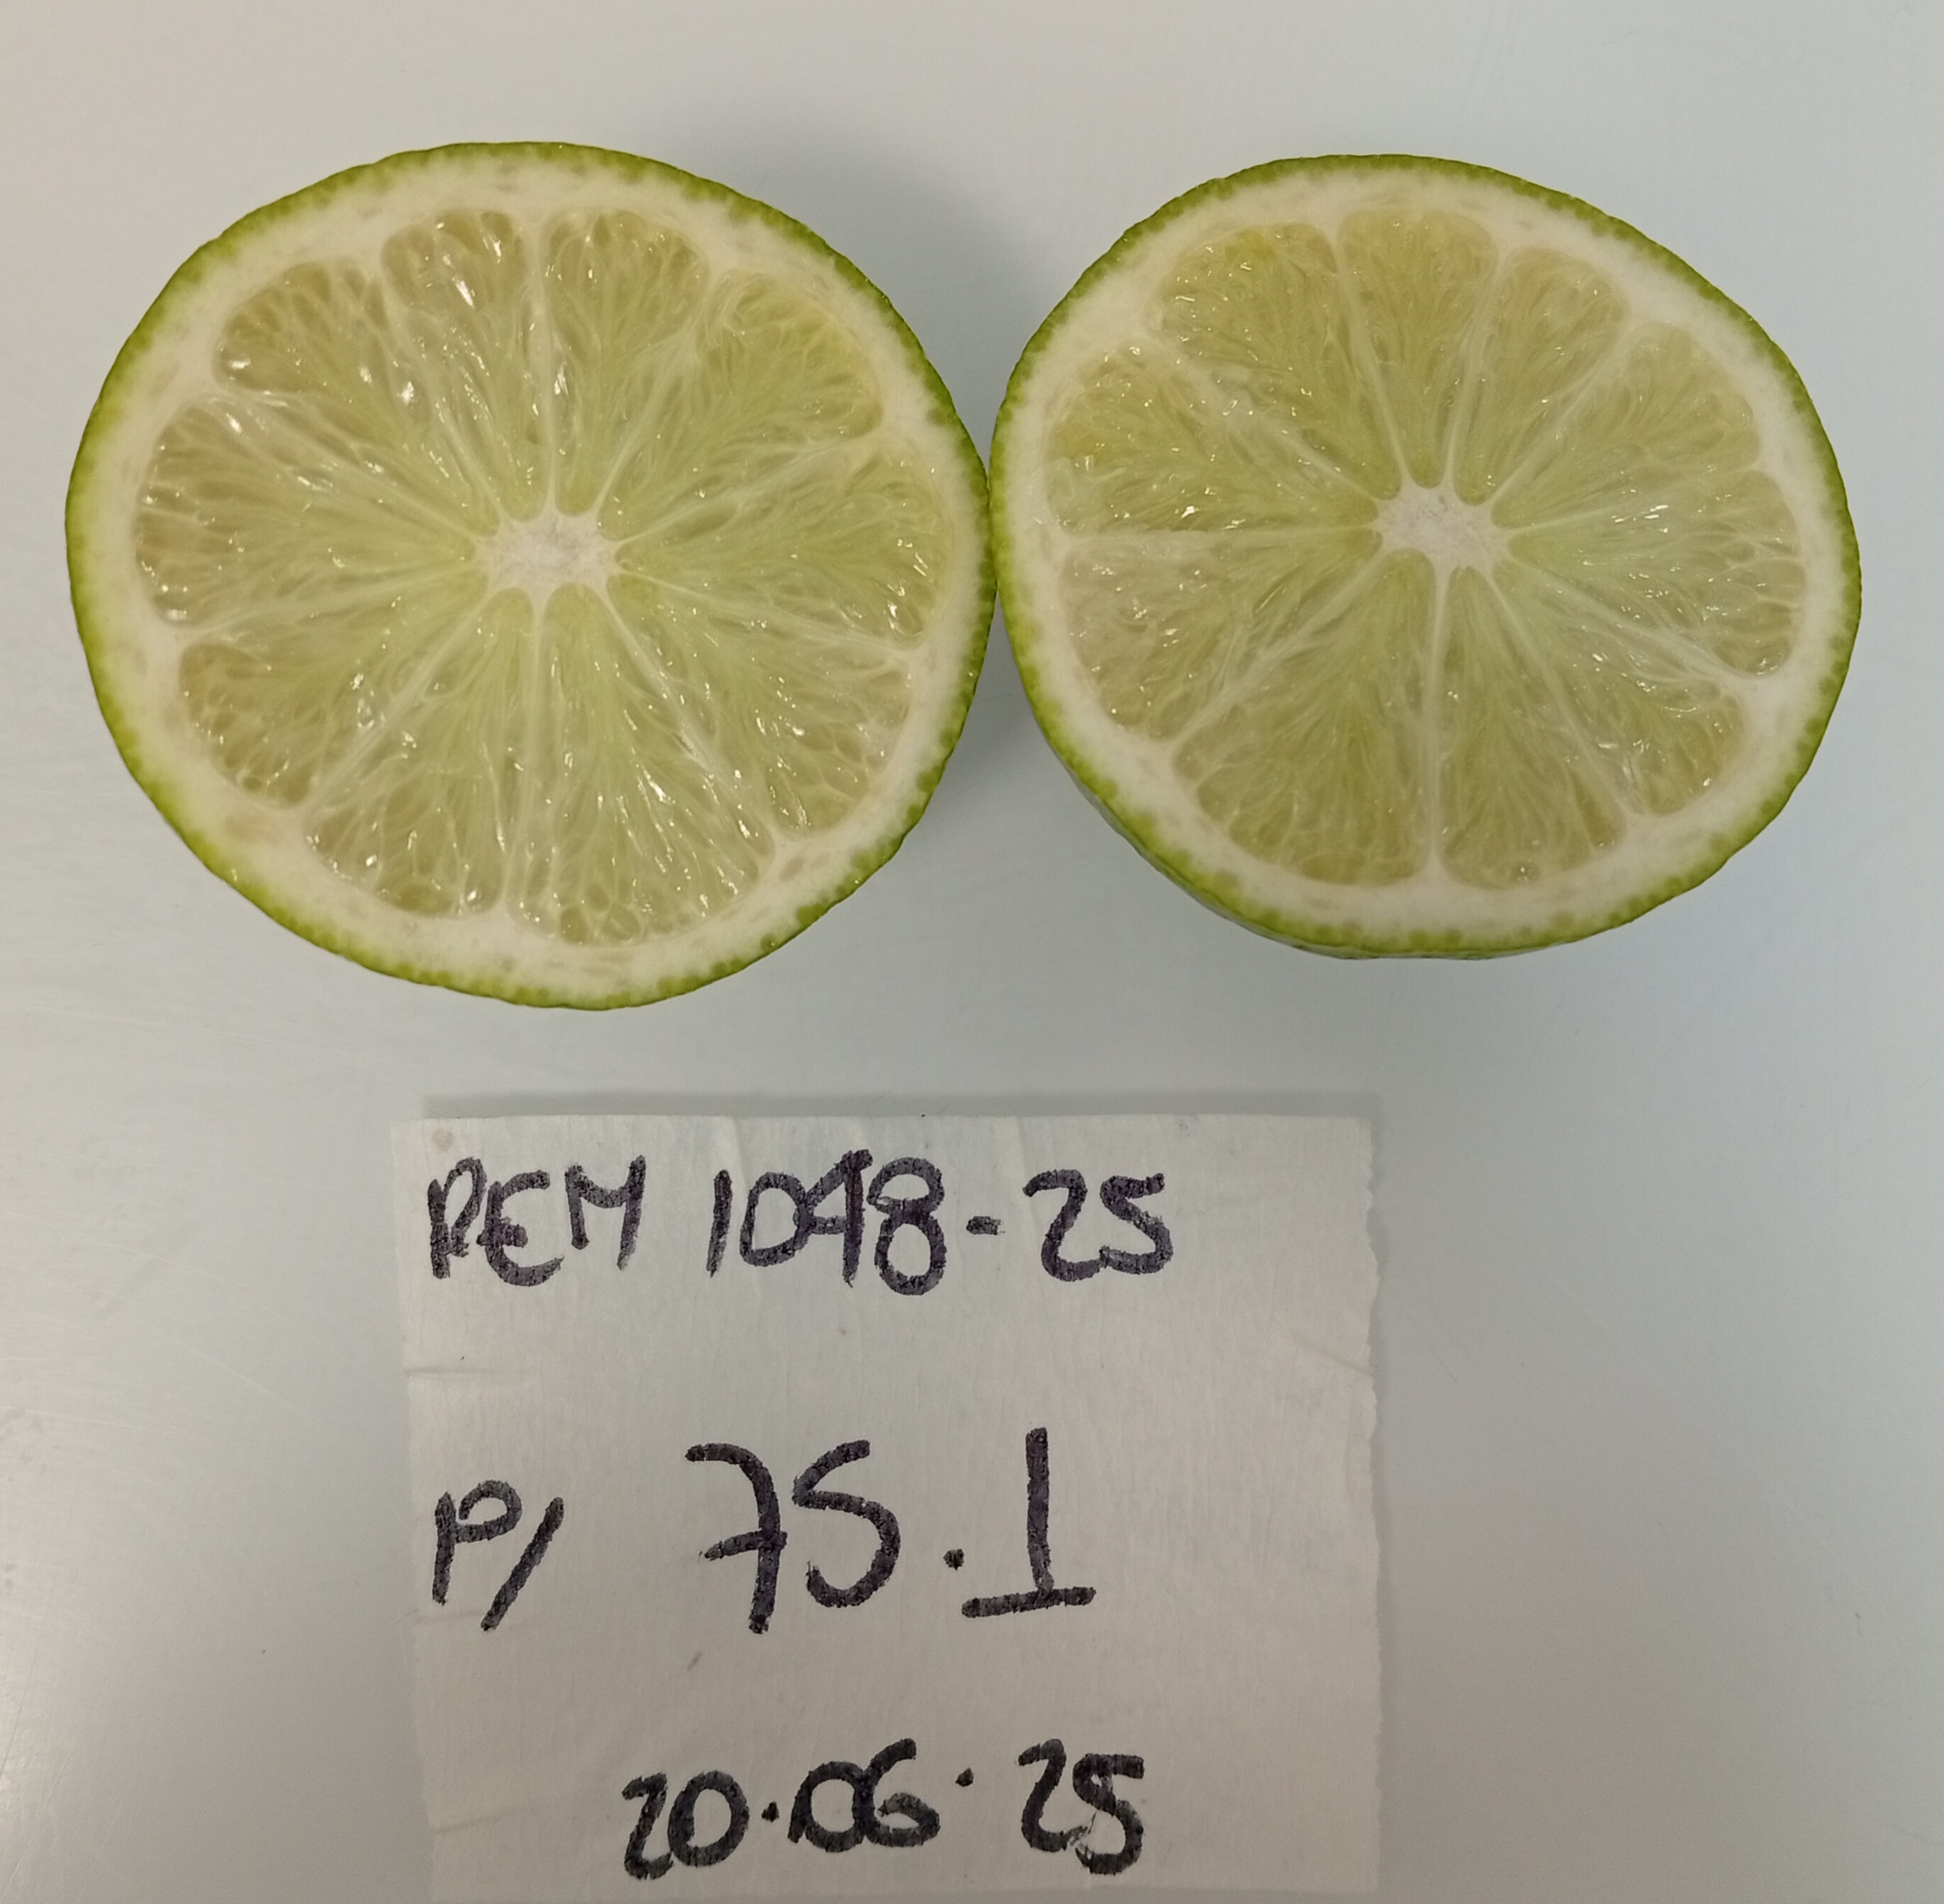 REM 1048-25
P/ 75.1
20.06.25